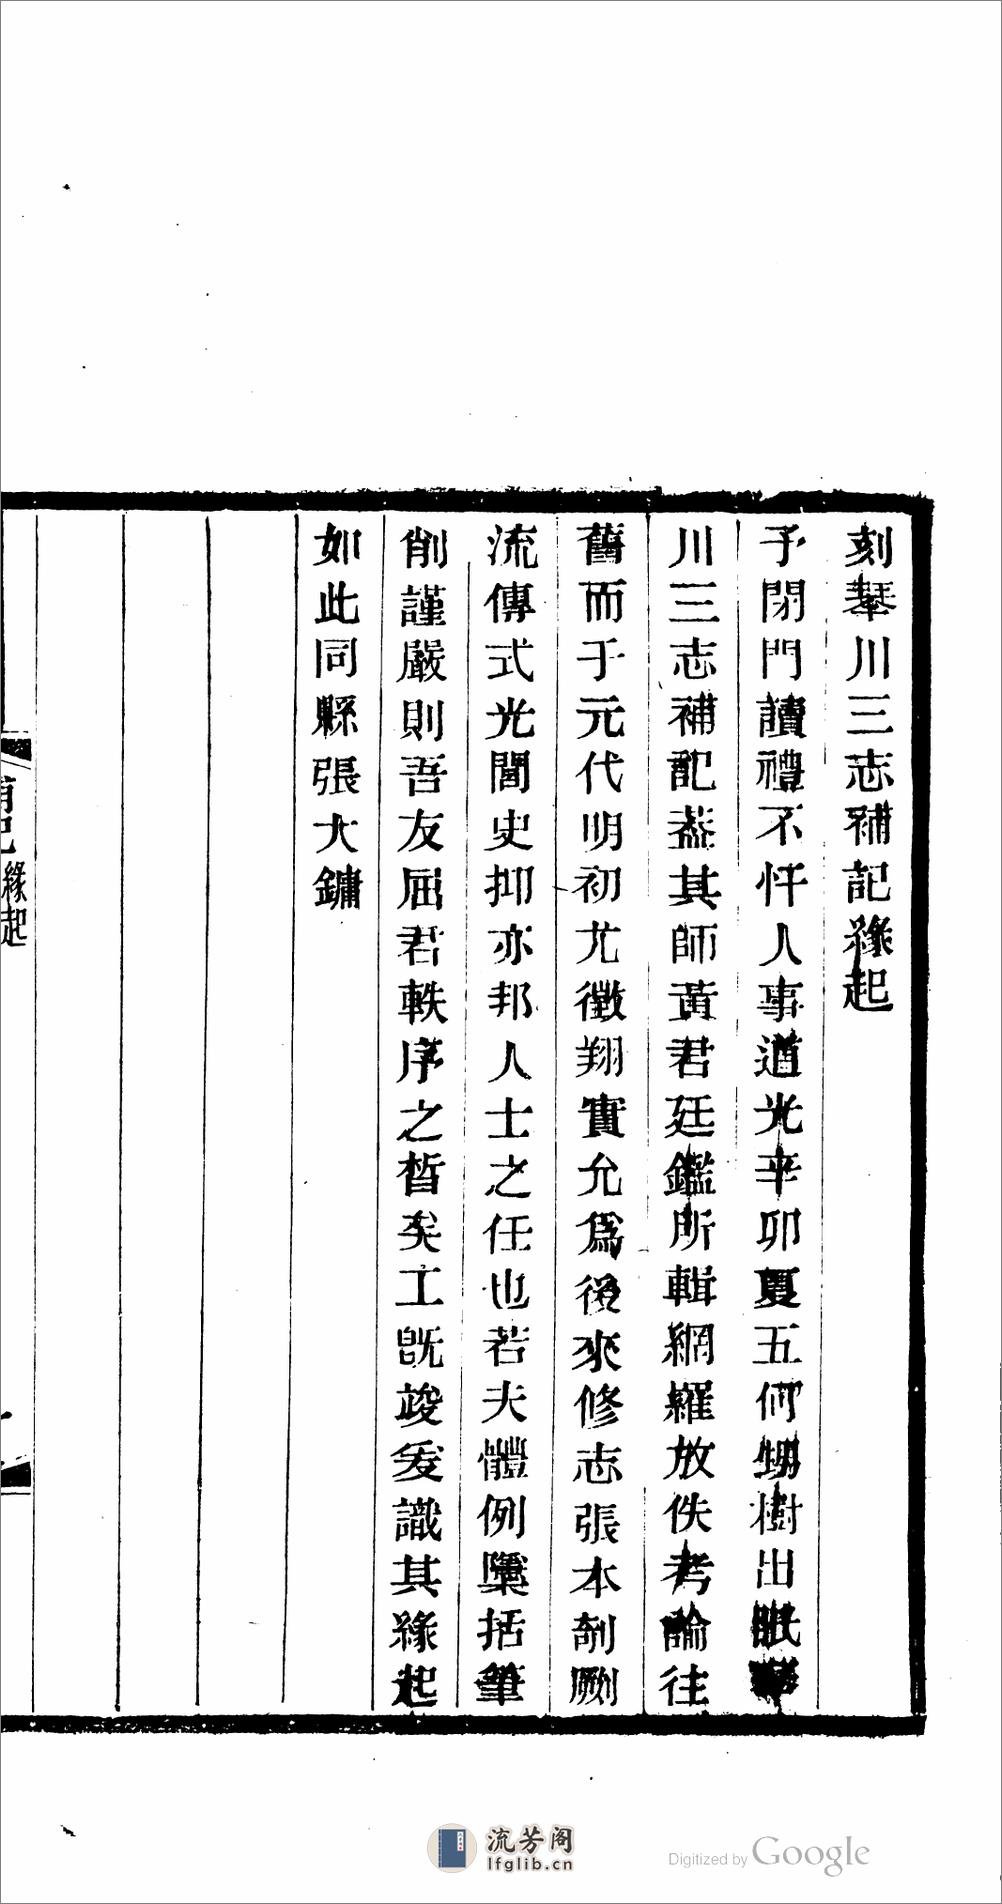 刻琴川三志補記緣起
予閉門讀禮不忤人事道光辛卯夏五何甥樹出眎琴
川三志補記葢其師黃君廷鑑所輯網羅放佚考論往
舊而于元代明初尤徵翔實允爲後來修志張本剞劂
流傳式光閭史抑亦邦人士之任也若夫體例櫽括筆
削謹嚴則吾友屈君軼序之晳矣工旣竣爰識其緣起
如此同縣張大鏞
補記緣起
流芳阁
lfglib.cn
Digitized by Google